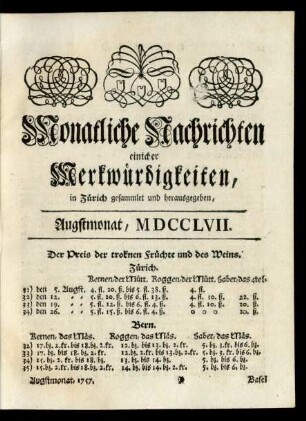 Monatliche Nachrichten
einicher
Merkwürdigkeiten,
in Zürich gesammlet und herausgegeben,
Augstmonat, MDCCLVII.
Der Preis der troknen Früchte und des Weins.
Zürich.
Kernen/der Mütt. Roggen/der Mütt. Haber/das
31) den 5. Augst. 4. fl. 20. ß. bis 5. fl. 25. ß. 4. fl.
32) den 12. 5. fl. 20. ß. bis 6. fl. 15. ß. 4. fl. 10. ß. 22. ß.
33) den 19. 5. fl. 12. ß. bis 6. fl. 5. ß. 4. fl. 10. ß. 20. ß.
34) den 26. 5. fl. 15. ß. bis 6. fl. 4. ß. 0 0 0 20. ß.
Bern.
Kernen, das Mäs. Roggen, das Mäs. Haber, das Mäs.
32) 17. bz. 2. kr. bis 18. bz. 2. kr. 12. bz. bis 13. bz. 2. kr. 5. bz. bis 6. bz.
33) 17. bz. bis 18. bz. 2. kr. 12. bz. bis 13. bz. 2. kr. 5. bz. bis 6. bz.
34) 15. bz. bis 18. bz. 12. bz. bis 13. bz. 5. bz. bis 6. bz.
35) 15. bz. 2. kr. bis 18. bz. 12. bz. bis 14. bz. 2. kr. 5. bz. bis 6. bz.
Augstmonat, 1757. Basel